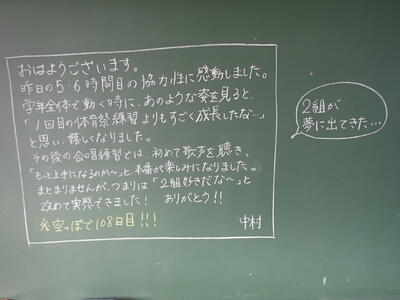 おはようございます。
昨日の5・6時間目の協力性に感動しました。
学年全体で動く時に、あのような姿を見ると、
「1回目の体育祭練習よりもすごく成長したな…」
と思い、嬉しくなりました。
その後の合唱練習では、初めて歌声を聴き、
「もっと上手になるのか〜」と本番が楽しみになりました。
まとまりませんが、つまりは「2組好きだな〜」と
改めて実感できました! ありがとう!!
※空っぽで108日目!!! 中村
2組が
夢に出てきた…